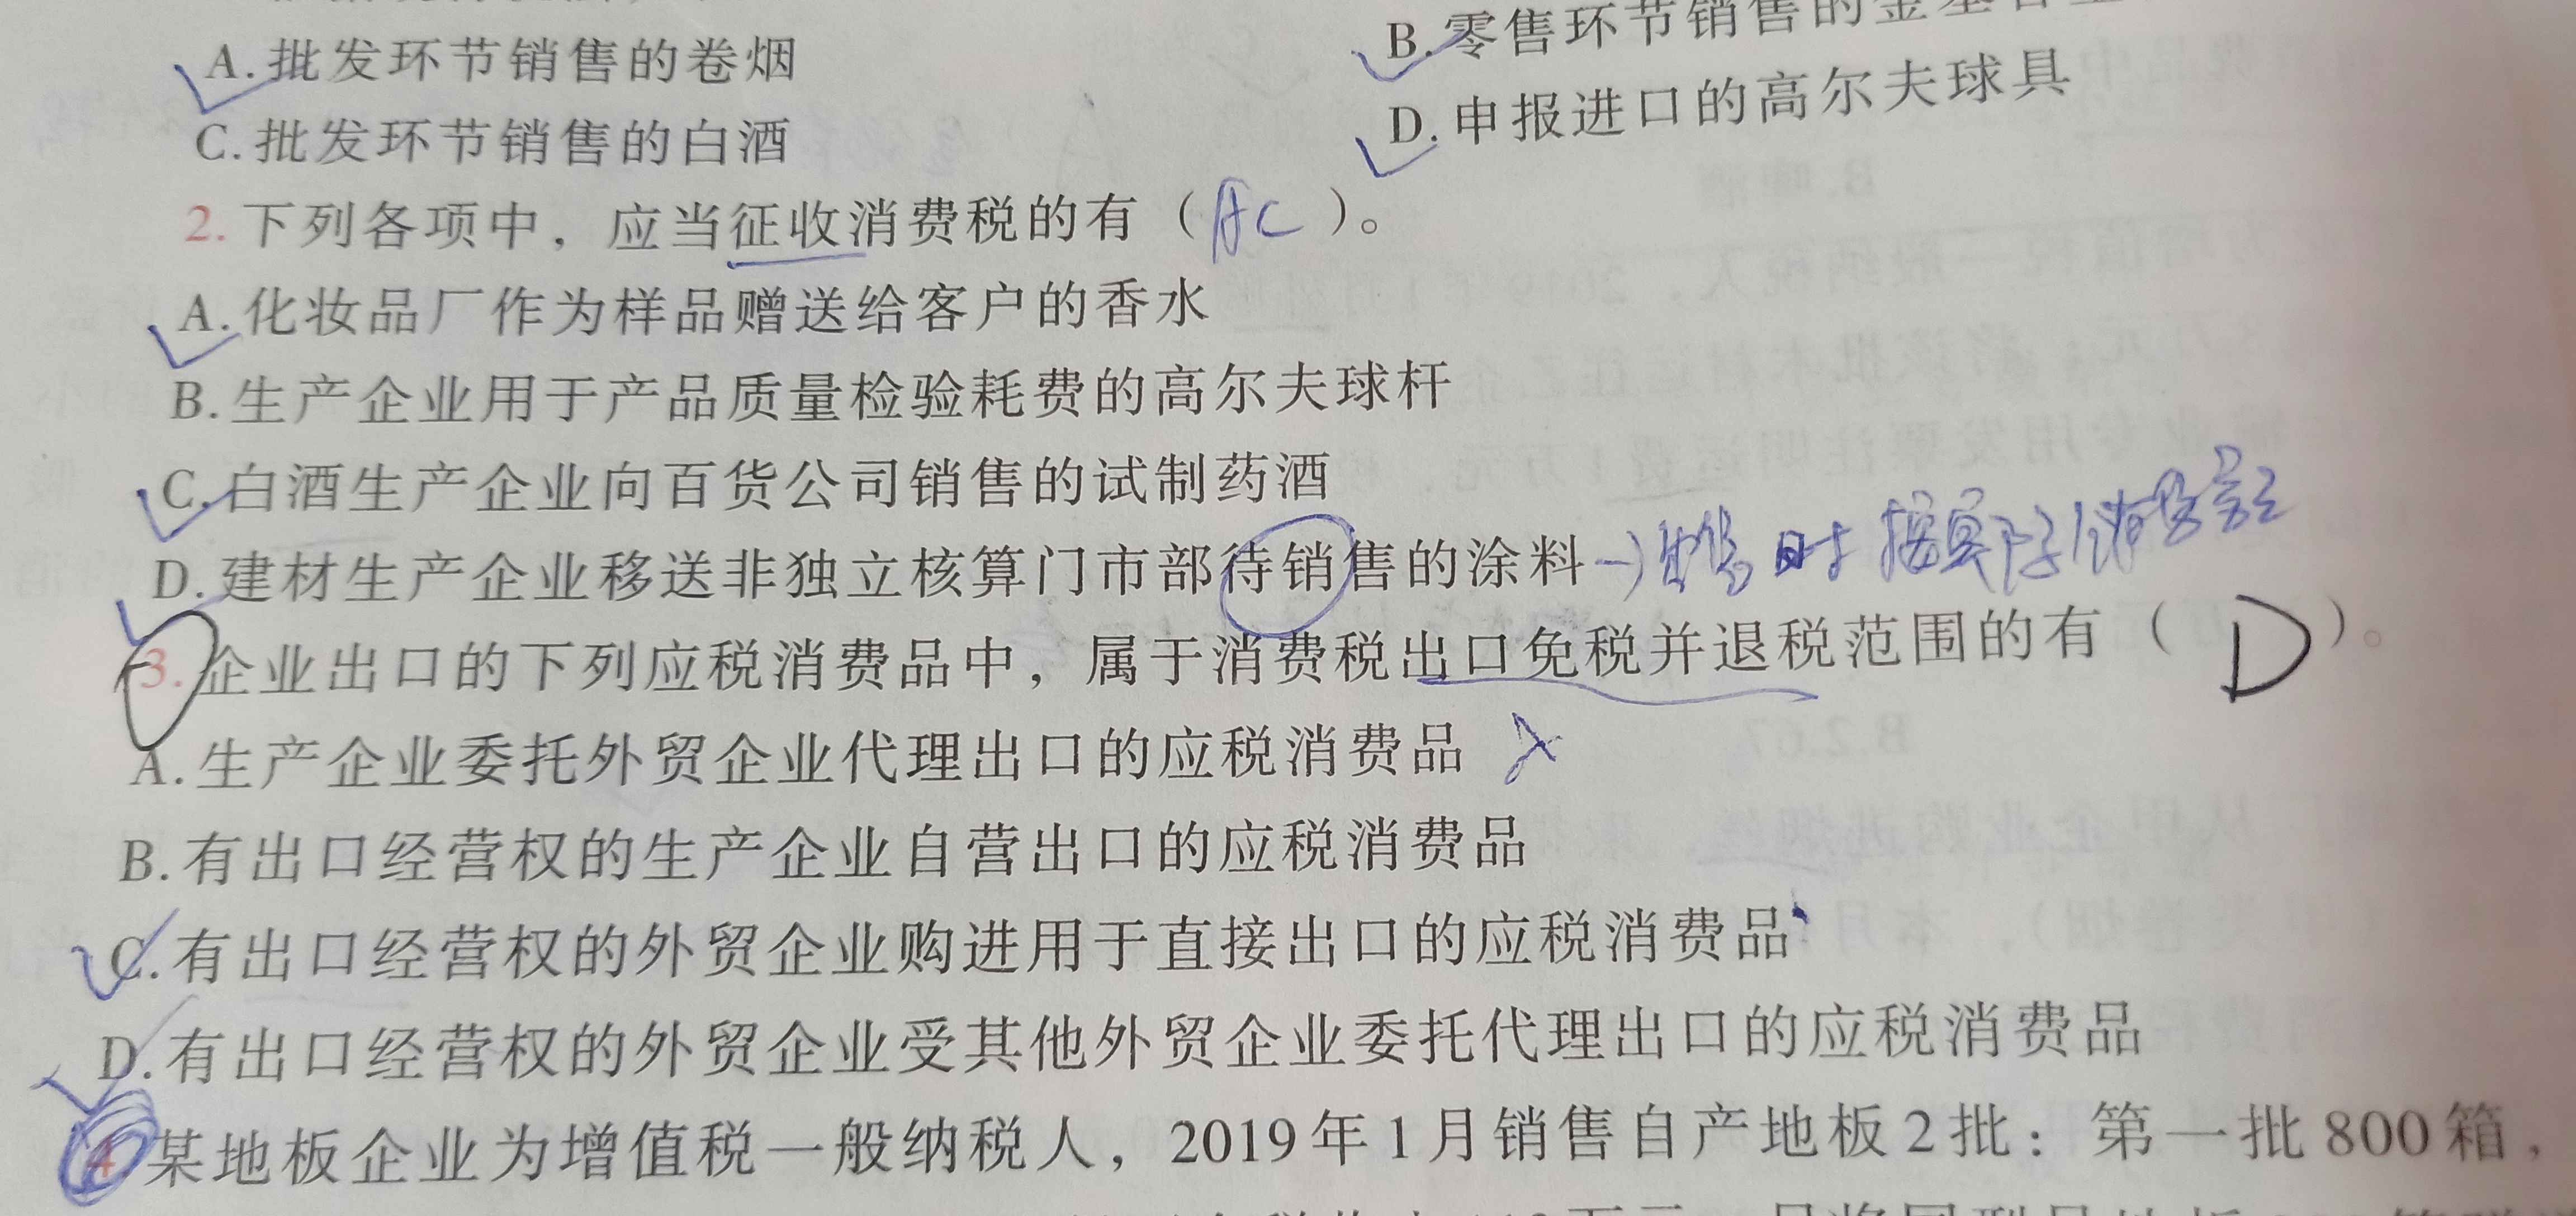 A.批发环节销售的卷烟
B.零售环节销售的金基合金
C.批发环节销售的白酒
D.申报进口的高尔夫球具
2.下列各项中，应当征收消费税的有（AC）。
A.化妆品厂作为样品赠送给客户的香水
B.生产企业用于产品质量检验耗费的高尔夫球杆
C.白酒生产企业向百货公司销售的试制药酒
D.建材生产企业移送非独立核算门市部待销售的涂料→销售时按实际销售额
3.企业出口的下列应税消费品中，属于消费税出口免税并退税范围的有（D）。
A.生产企业委托外贸企业代理出口的应税消费品
B.有出口经营权的生产企业自营出口的应税消费品
C.有出口经营权的外贸企业购进用于直接出口的应税消费品
D.有出口经营权的外贸企业受其他外贸企业委托代理出口的应税消费品
4某地板企业为增值税一般纳税人，2019年1月销售自产地板2批：第一批800箱，